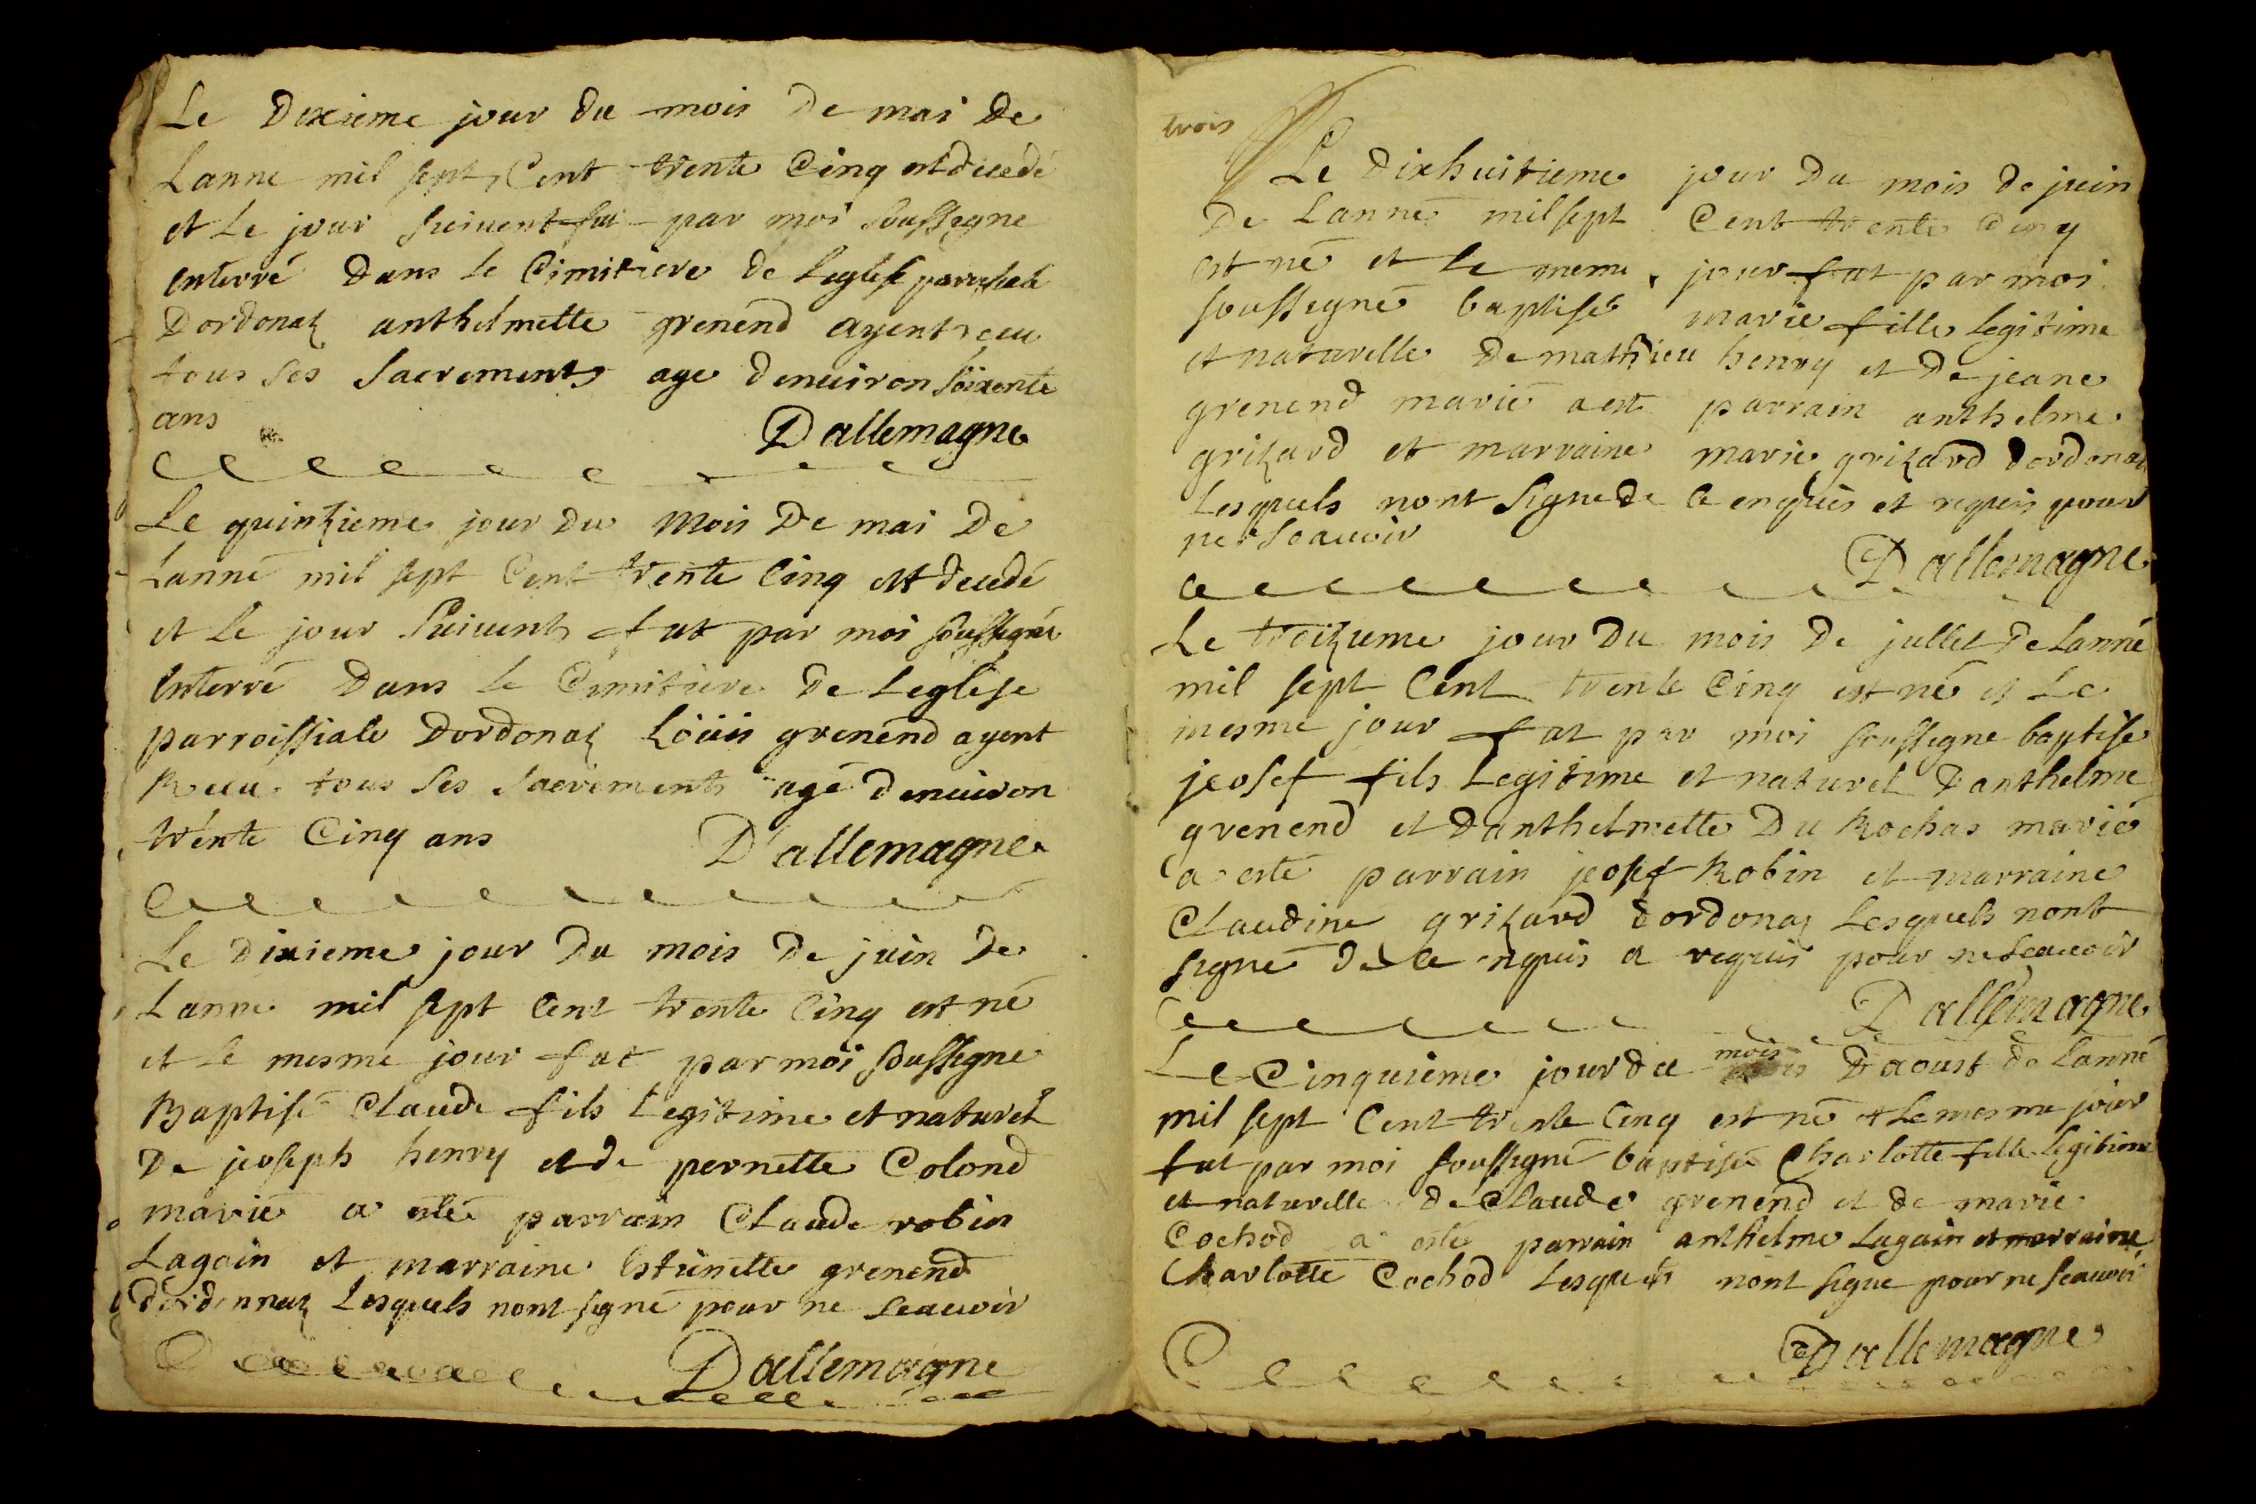 Le Dixieme jour du mois De mai De
Lanne mil sept Cent trente Cinq est decedé
et Le jour suivent fut par moi soussegne
enterré Dans le Cimitiere de Leglise
Dordonaz anthelmette grenend ayent recu
tous ses sacrements age denuiron soixente
ans
Dallemagne
Le quinzieme jour du mois De mai De
Lanné mil sept Cent trente Cinq est decedé
et Le jour suivent fut par moi soussegné
enterré Dans le Cimitiere De Leglise
parroissiale Dordonaz Loüis grenend ayent
Recu tous ses sacrements agé denuiron
trente Cinq ans
Dallemagne
Le dixieme jour Du mois De juin De
Lanne mil sept Cent trente Cinq est né
et le mesme jour fut par moi soussegne
Baptisé Claude fils Legitime et naturel
De jeoseph henry et de pernette Colond
marié a esté parrain Claude robin
Lagoin et marraine Estienette grenend
dordonnaz Lesquels nont segné pour ne sçauoir
Dallemagne
trois
Le dixhuitieme jour Du mois de juin
De Lanné mil sept Cent trente Cinq
est né et le meme jour fut par moi
soussegné baptisé marie fille Legitime
et naturelle De mathieu henry et De jeane
grenend marié a esté parrain anthelme
grizard et marraine marie grizard Dordonaz
Lesquels nont signe De Ce enquis et requis pour
ne scauoir
Dallemagne
Le treizieme jour Du mois De jullet De Lanné
mil sept Cent trente Cinq est né et Le
mesme jour fut par moi soussegne baptise
jeosef fils Legitime et naturel Danthelme
grenend et Danthelmette Du Rochas marié
a esté parrain jeosef Robin et marraine
Claudine grizard dordonaz Lesquels nont
segné De Ce enquis a requis pour ne scauoir
Dallemagne
Le Cinquieme jour du mois Daoust de Lanné
mil sept Cent trente Cinq est né et Le mesme jour
fut par moi soussegné baptisé Charlotte fille Legitime
et naturelle de Claude grenend et de marie
Cochod a esté parrain anthelme Lagain et marraine
Charlotte Cochod Lesquels nont signe pour ne scauoir
Dallemagne